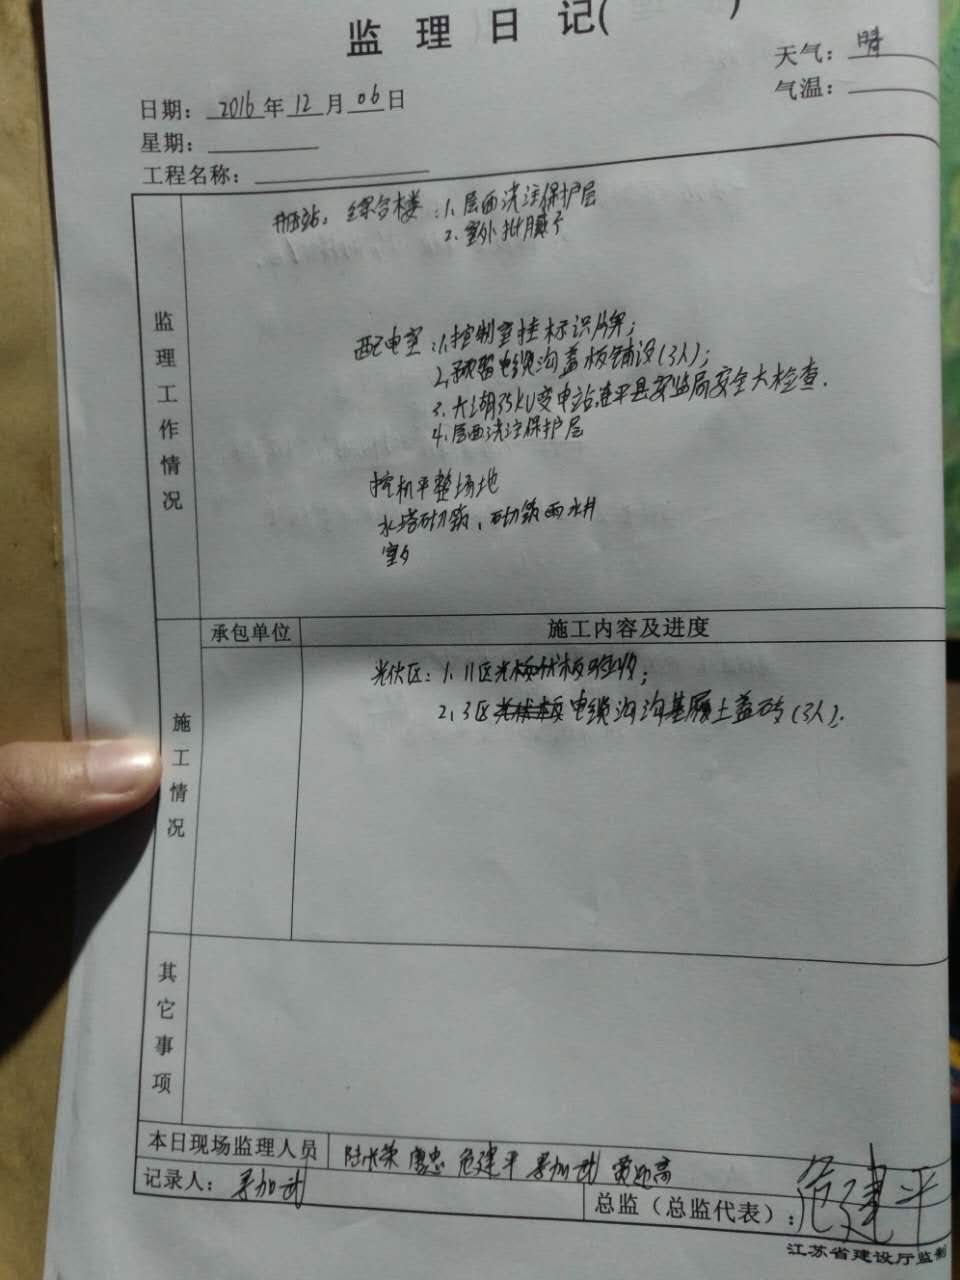 监理日记( )
天气：晴
日期：2016年12月06日
气温：
星期：
工程名称：
监理工作情况
升压站：综合楼：1、层面浇注保护层
2、室外批腻子
配电室：1、控制室挂标识牌；
2、预留电缆沟盖板铺设(3人)；
3、大湖35kV变电站连平县安监局安全大检查．
4、层面浇注保护层
挖机平整场地
水塔砌筑、砌筑雨水井
室外
承包单位 施工内容及进度
施工情况
光伏区：1、11区光伏板验收；
2、3区电缆沟沟基履土盖砖(3人)．
其它事项
本日现场监理人员 陆 危建平 加武
记录人：加武
总监（总监代表）：危建平
江苏省建设厅监制